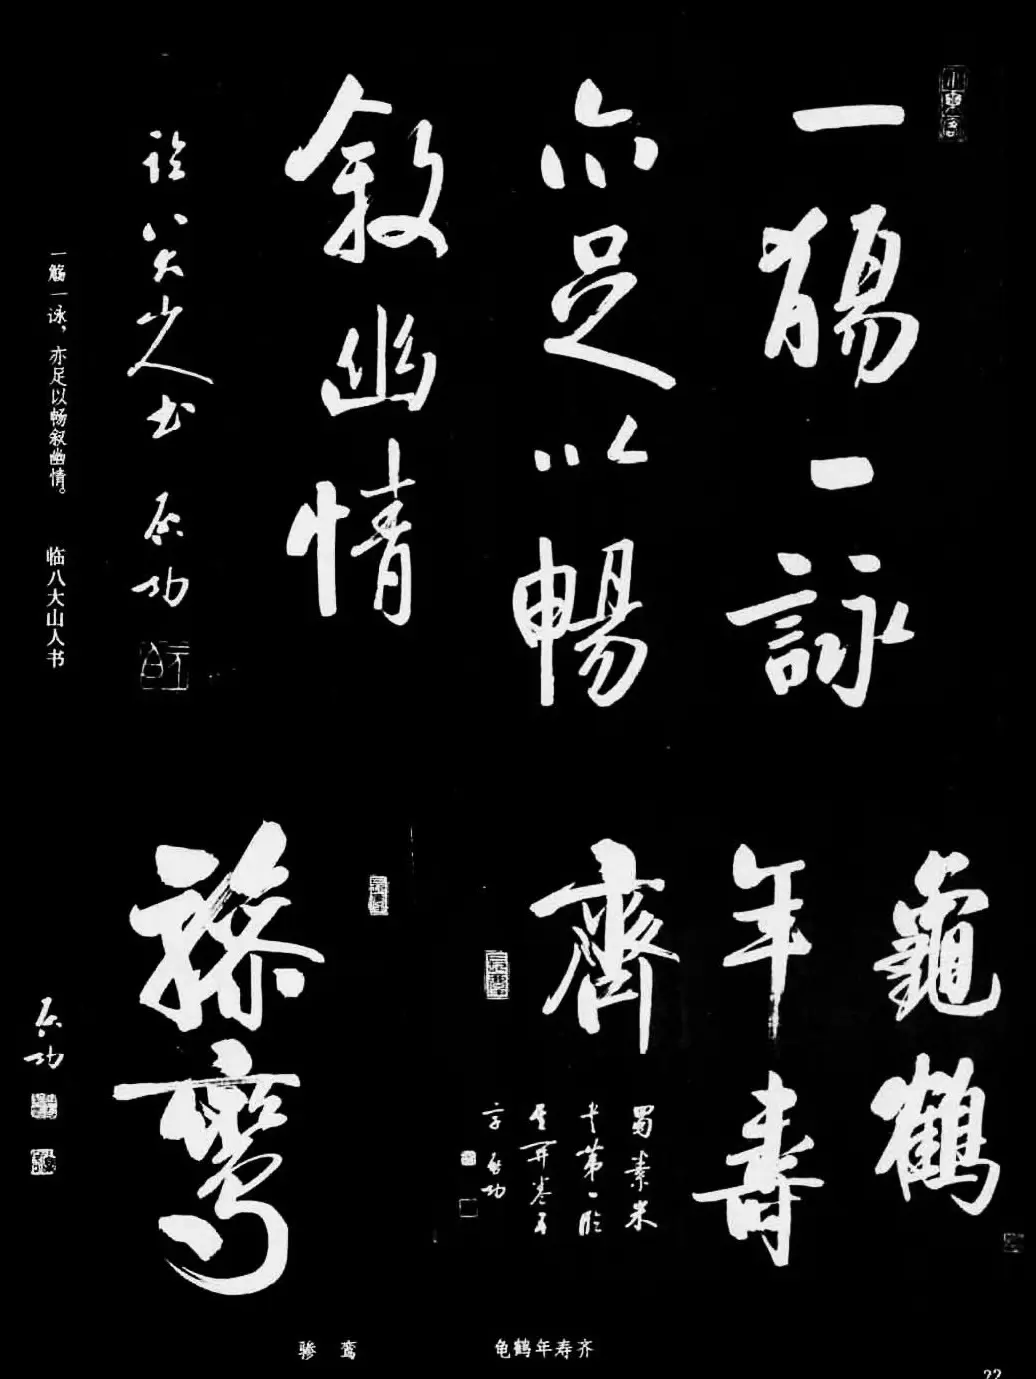 一觴一詠
亦足以暢
敘幽情
臨八大山人书
启功
一觞一咏，亦足以畅叙幽情。 临八大山人书
龜鶴
年壽
齊
蜀素米
书第一临
字启功
驂鸾
启功
骖鸾
龟鹤年寿齐
22